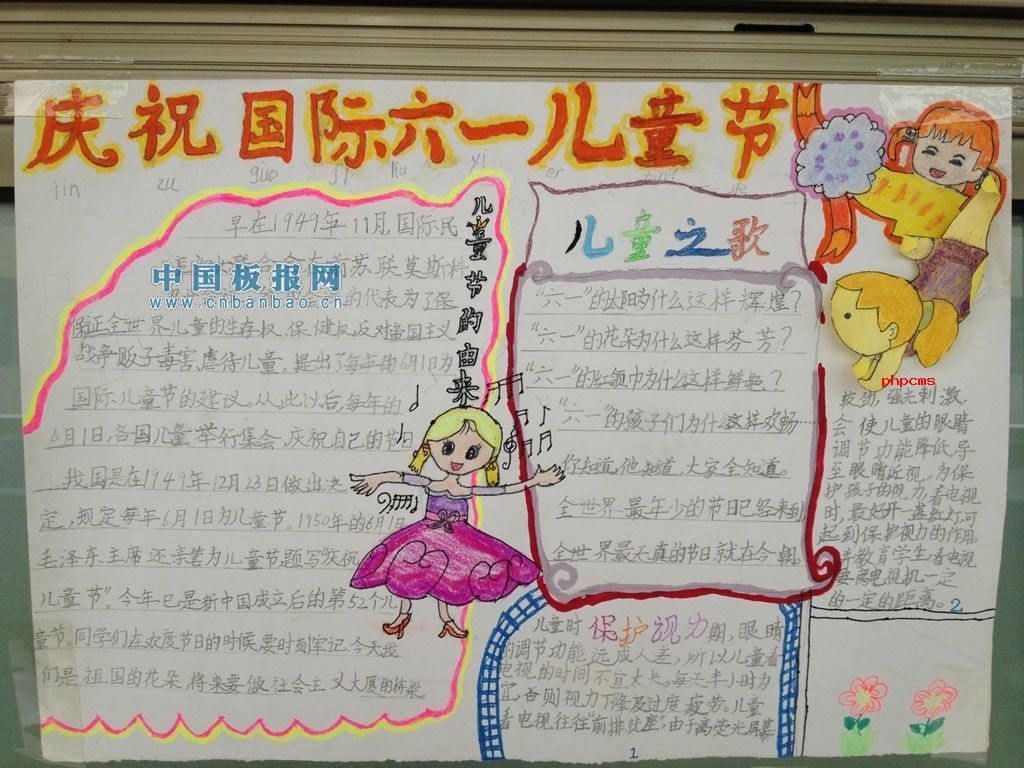 庆祝国际六一儿童节
jin zu guo ji liu yi er
儿童节的由来
早在1949年11月,国际民
的代表为了保
保证全世界儿童的生存权、保健权,反对帝国主义
战争贩子毒害虐待儿童,提出了每年的6月1日为
国际儿童节的建议。从此以后,每年的
6月1日,各国儿童举行集会,庆祝自己的节日
我国是在1949年12月23日做出决
定,规定每年6月1日为儿童节。1950年的6月1日
毛泽东主席还亲笔为儿童节题写“庆祝
儿童节”。今年已是新中国成立后的第52个儿
童节。同学们在欢度节日的时候,要时刻牢记,今天我
们是祖国的花朵,将来要做社会主义大厦的桥梁
中国板报网
www.cnbanbao.cn
儿童之歌
“六一”的太阳为什么这样辉煌?
“六一”的花朵为什么这样芬芳?
“六一”的红领巾为什么这样鲜艳?
“六一”的孩子们为什么这样欢畅……
你知道,他知道,大家全知道。
全世界最年少的节日已经来到
全世界最天真的节日就在今朝
儿童时保护视力期,眼睛
的调节功能远成人差,所以儿童看
电视的时间不宜太长,每天半小时为
宜,否则视力下降及过度疲劳。儿童
看电视往往“前排就座”,由于离荧光屏幕
1
phpcms
较劲,强光刺激,
会使儿童的眼睛
调节功能降低,导
至眼睛近视。为保
护孩子的视力,看电视
时,最好开一盏红灯,可
起到保护视力的作用,
并教育学生,看电视
要离电视机一定
的一定的距离。2